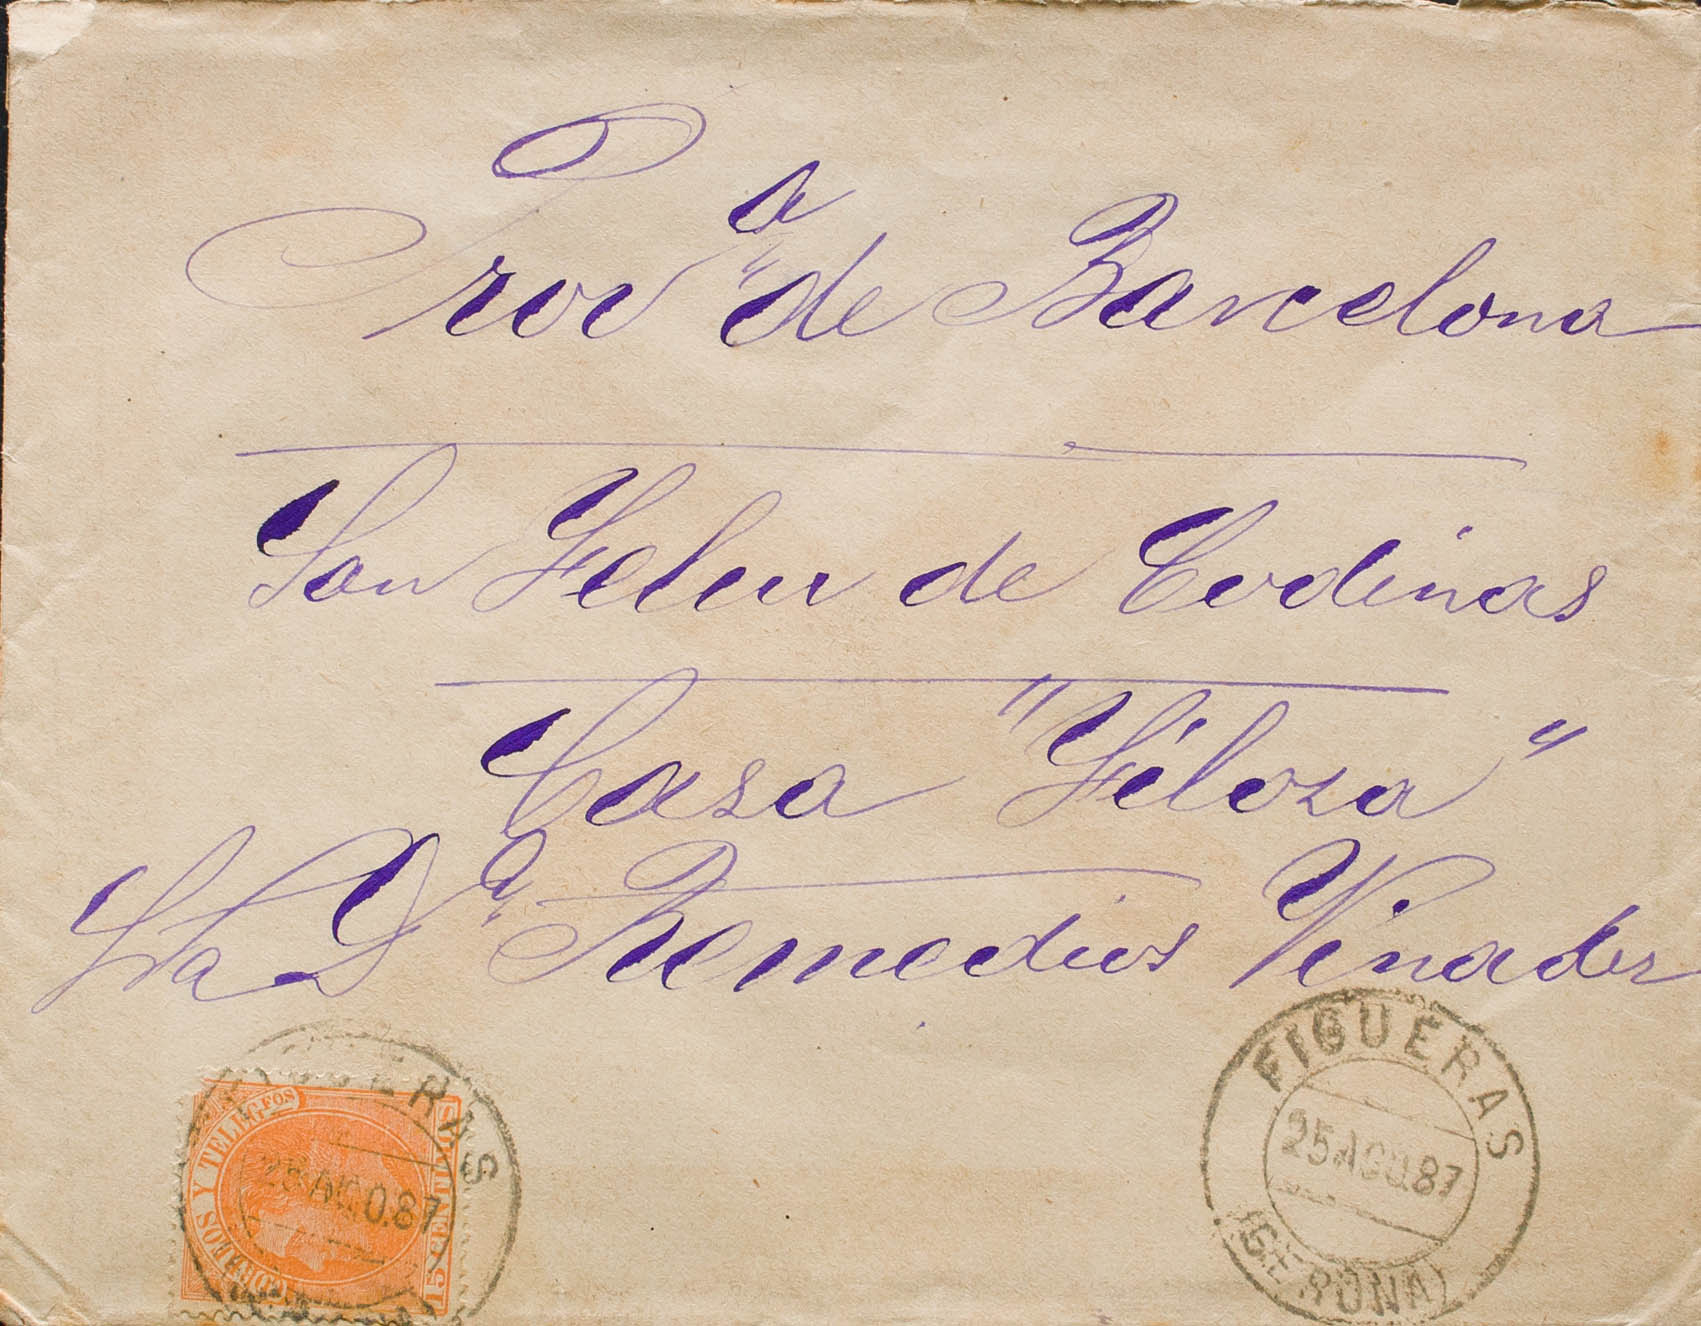 Prov.ª de Barcelona
San Feliu de Codinas
Casa "Féloza"
Sra D.ª Remedios Vinader
FIGUERAS
25 AGO. 87
(GERONA)
CORREOS Y TELEGFOS
15 CENTIMOS
FIGUERAS
25 AGO. 87
(GERONA)